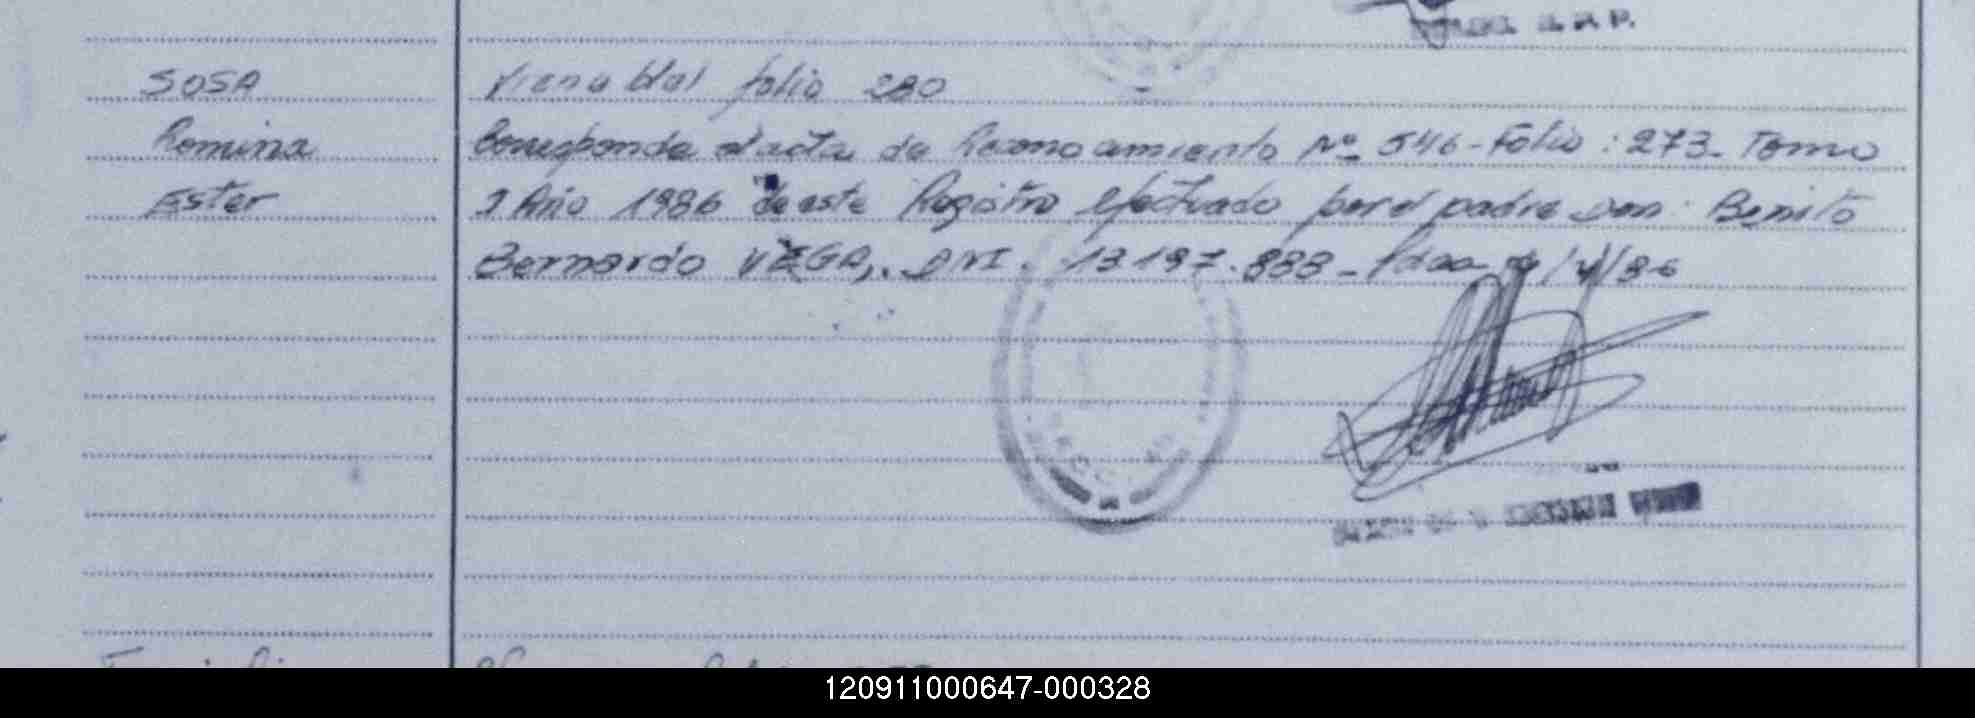 SOSA
Romina
Ester
Viene del folio 280
Corresponde al acta de Reconocimiento Nº 546 - Folio: 273 - Tomo
2 Año 1986 de este Registro efectuado por el padre Don: Benito
Bernardo VEGA, DNI. 13.197.888 - /4/86
120911000647-000328